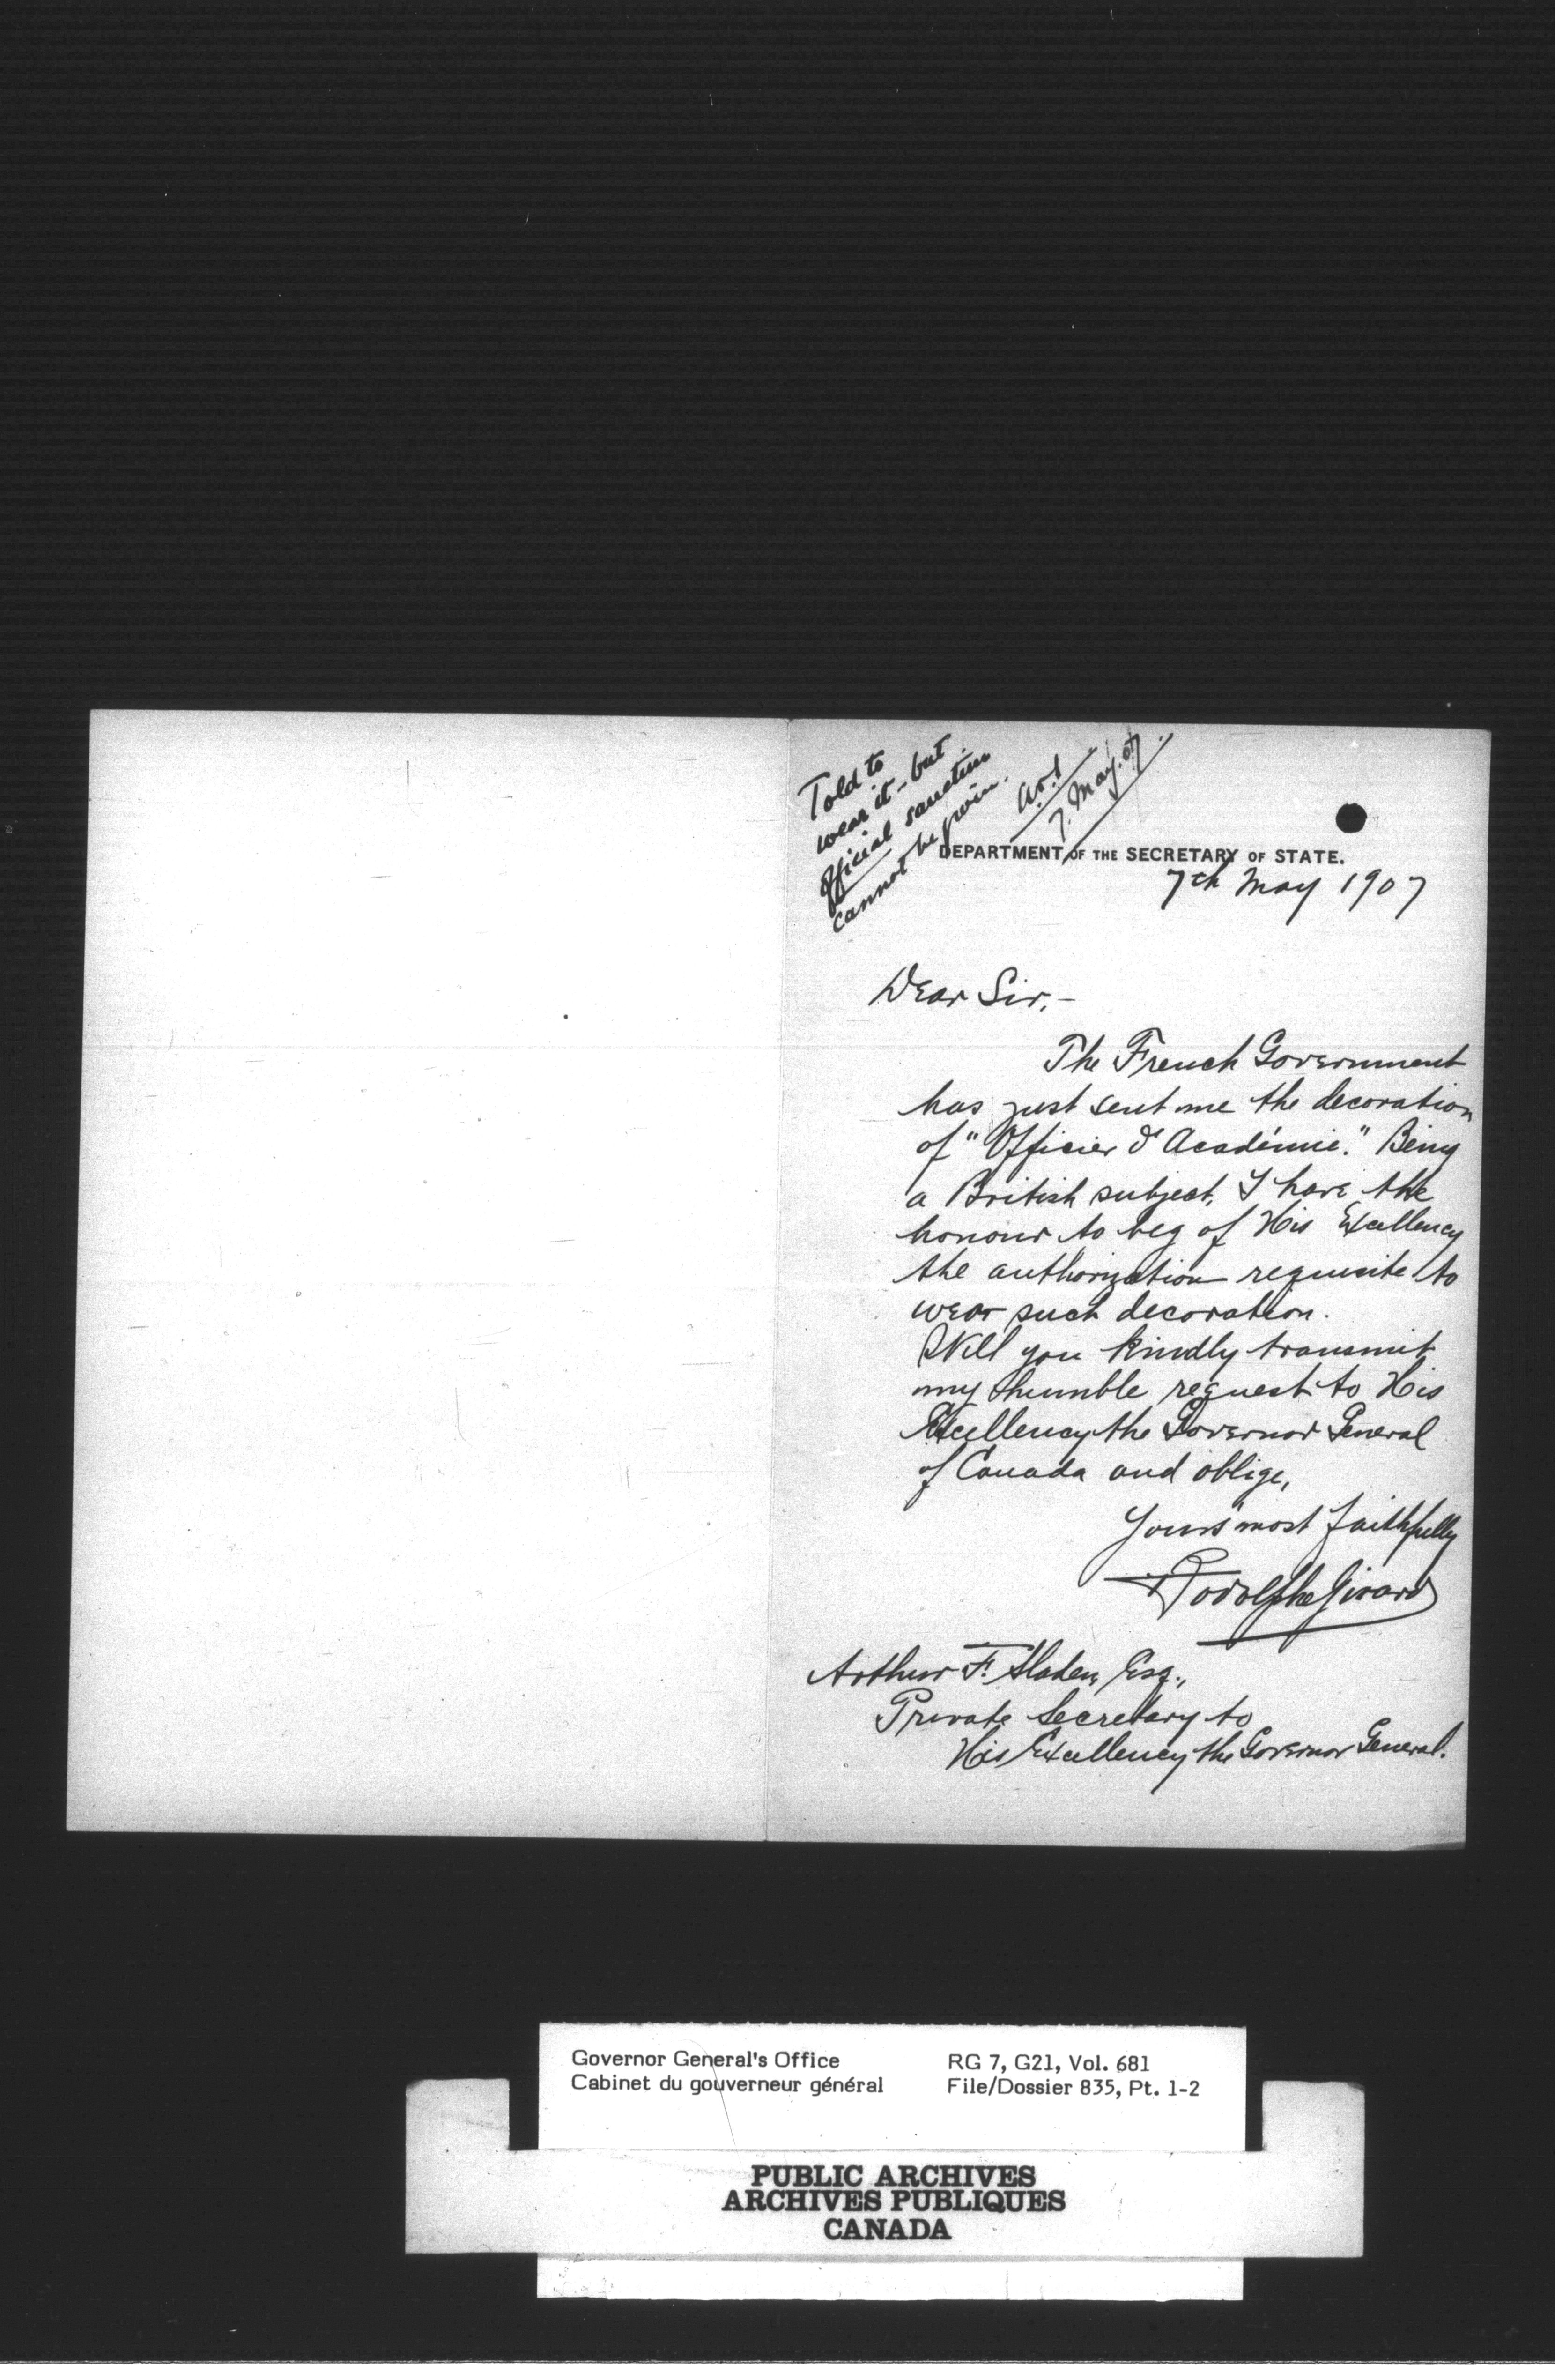 Told to
wear it - but
official sanction
cannot be given.
7. May. 07
DEPARTMENT OF THE SECRETARY OF STATE.
7th May 1907
Dear Sir,-
The French Government
has just sent me the decoration
of "Officier d'Académie." Being
a British subject, I have the
honour to beg of His Excellency
the authorization requisite to
wear such decoration.
Will you kindly transmit
my humble request to His
Excellency the Governor General
of Canada and oblige,
Yours most faithfully
Rodolphe Girard
Arthur F. Sladen, Esq.,
Private Secretary to
His Excellency the Governor General.
Governor General's Office
Cabinet du gouverneur général
RG 7, G21, Vol. 681
File/Dossier 835, Pt. 1-2
PUBLIC ARCHIVES
ARCHIVES PUBLIQUES
CANADA